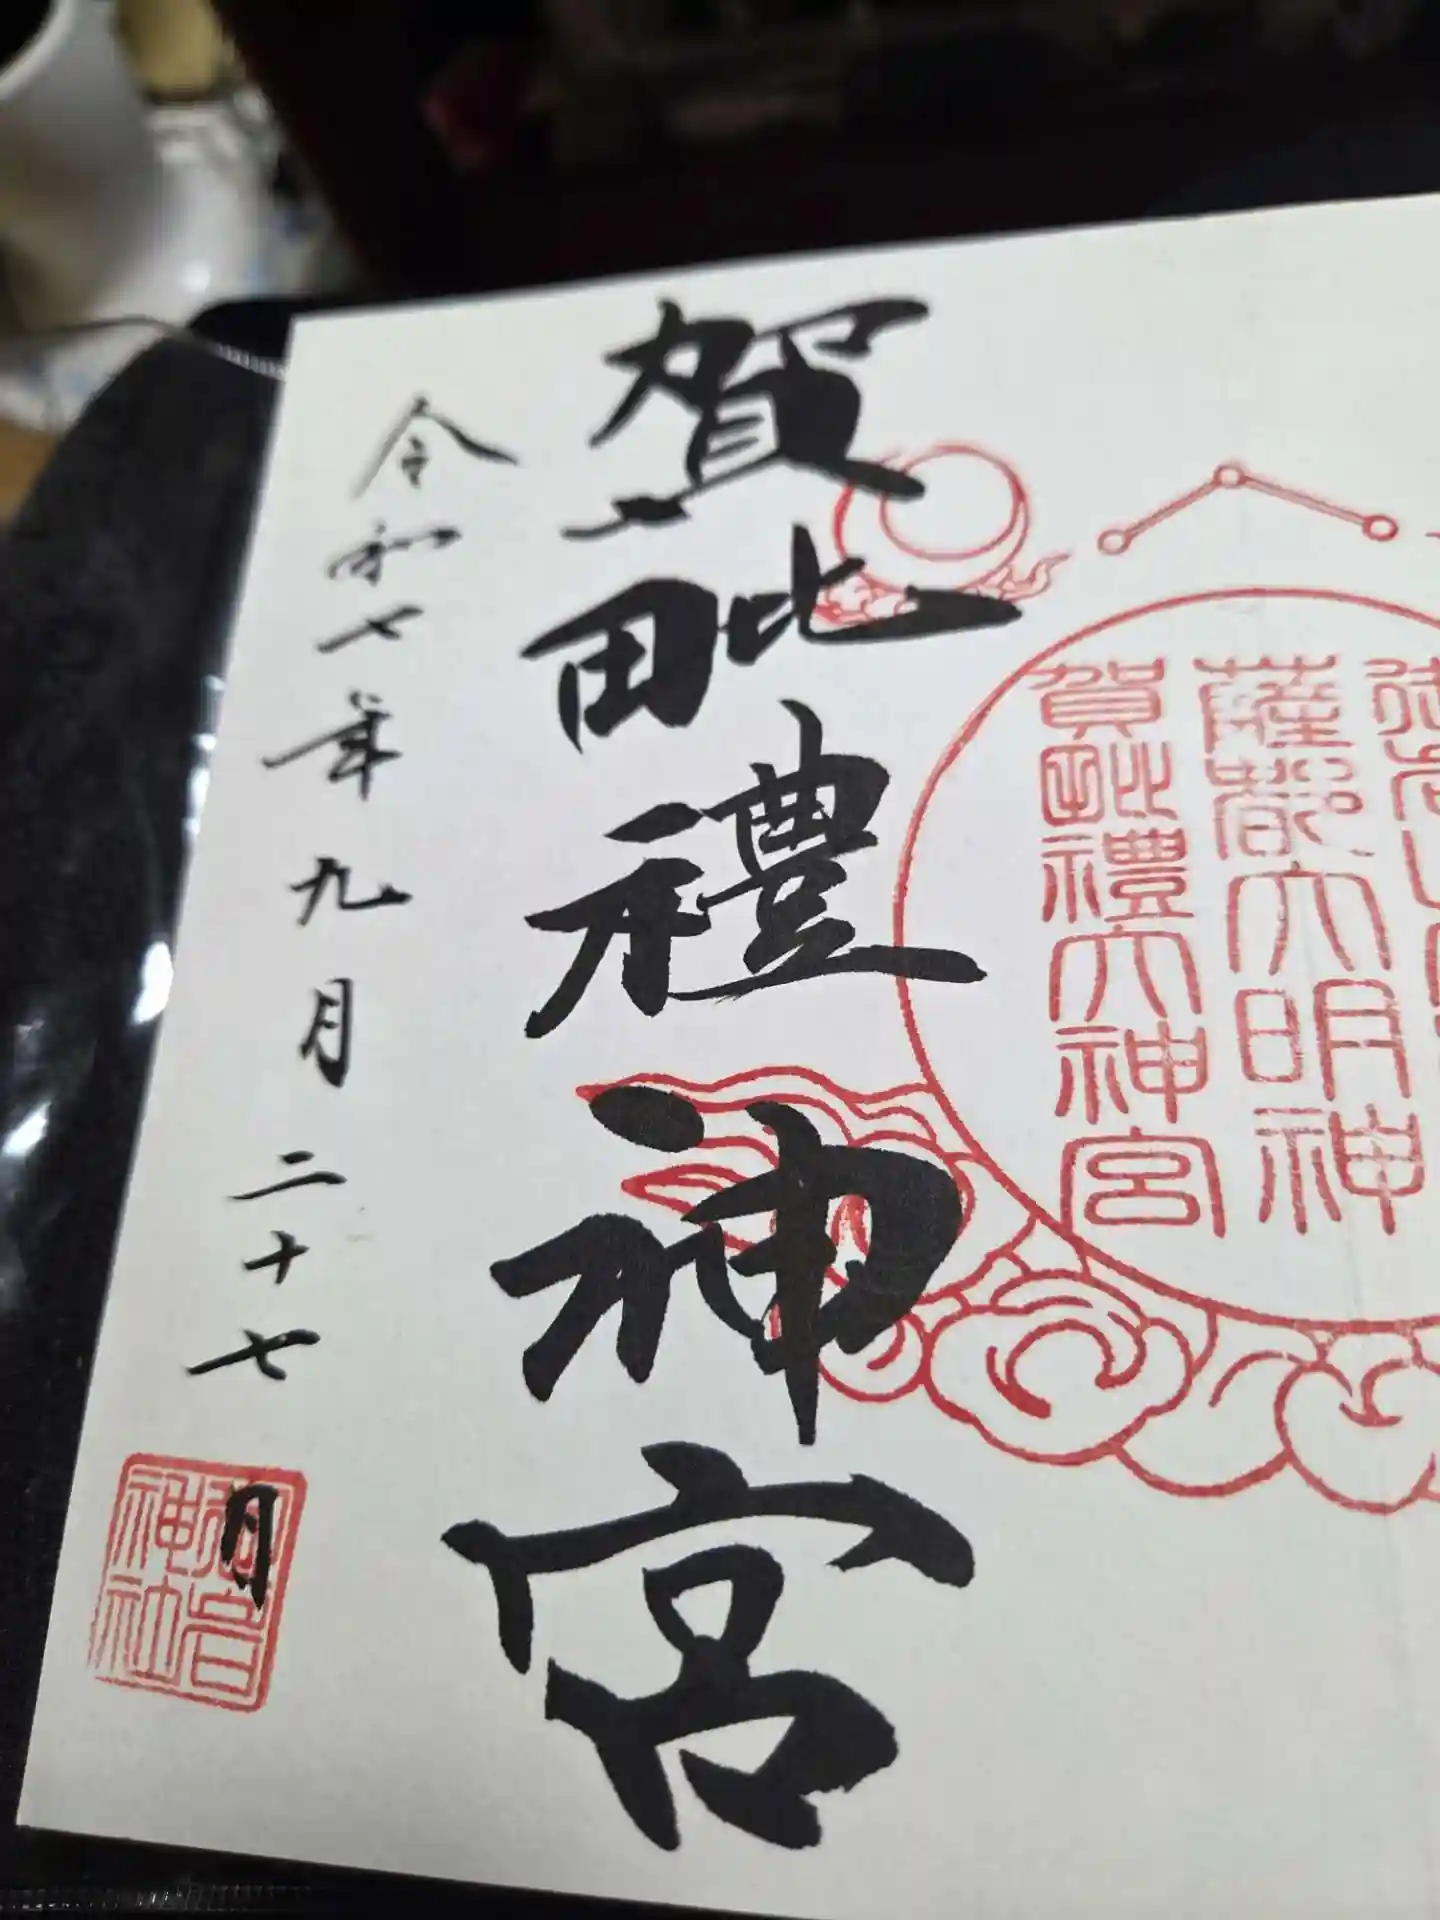 薩都大明神
賀毗禮大神宮
賀毗禮神宮
令和七年九月二十七日
御岩神社